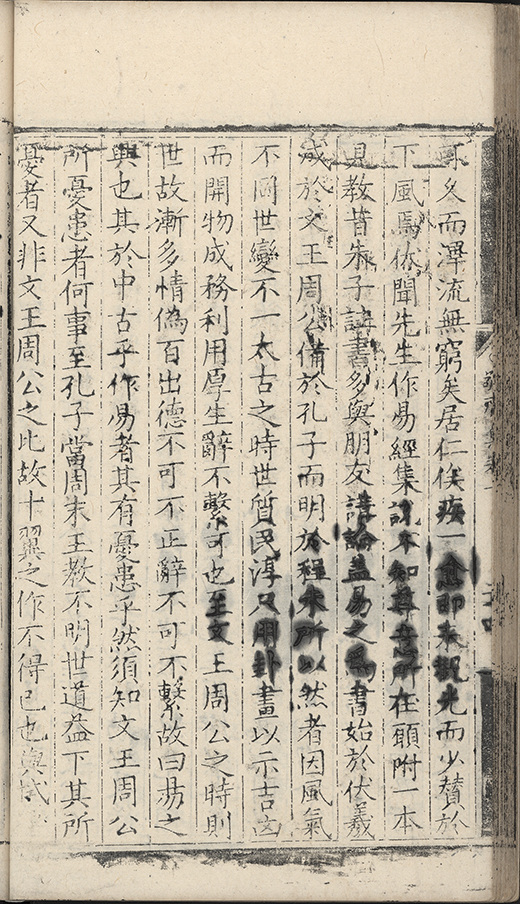 可久而澤流無窮矣居仁俟疾一愈即來觀光而少贊於
下風焉伏聞先生作易經集說不知尊意所在願附一本
見教昔朱子註書多與朋友講論蓋易之爲書始於伏羲
成於文王周公備於孔子而明於程朱所以然者因風氣
不同世變不一太古之時世質民淳只用卦畫以示吉凶
而開物成務利用厚生辭不繫可也至文王周公之時則
世故漸多情僞百出德不可不正辭不可不繫故曰易之
興也其於中古乎作易者其有憂患乎然須知文王周公
所憂患者何事至孔子當周末王教不明世道益下其所
憂者又非文王周公之比故十翼之作不得已也與